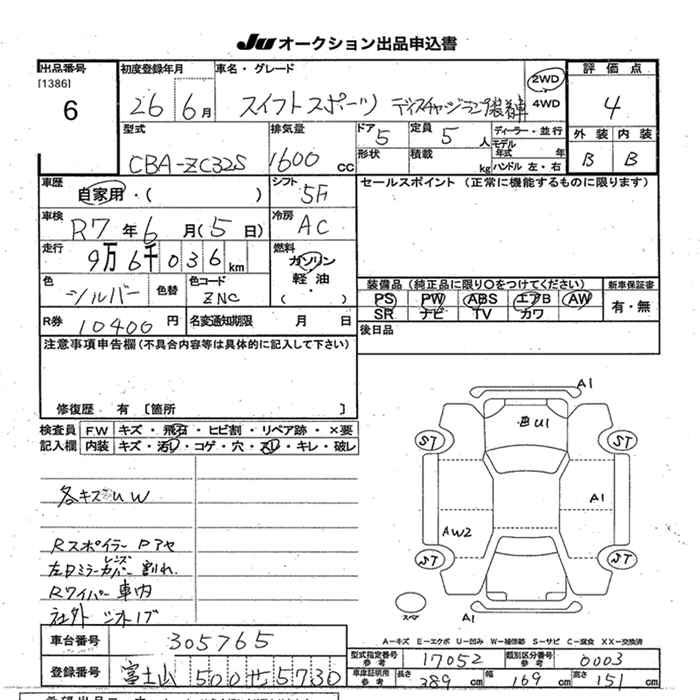 JU オークション出品申込書
出品番号 初度登録年月 車名・グレード 2WD 評価点
[1386]
6 26 6月 スイフトスポーツ ディスチャージランプ装着車 4WD 4
型式 排気量 ドア 定員 ディーラー・並行 外装 内装
CBA-ZC32S 1600 CC 5 5人 モデル年式 年 B B
形状 積載 kg ハンドル 左・右
車歴 自家用・( ) シフト 5F セールスポイント (正常に機能するものに限ります)
車検 R7年6月(5日) 冷房 AC
走行 9万6千036km 燃料 ガソリン
軽油
・
( )
色 シルバー 色替 色コード ZNC 装備品 (純正品に限り○をつけてください) 新車保証書
PS PW ABS エアB AW 有・無
R券 10400円 名変通知期限 月 日 SR ナビ TV カワ
注意事項申告欄(不具合内容等は具体的に記入して下さい) 後日品
修復歴 有 〔箇所 〕
検査員 FW キズ・飛石・ヒビ割・リペア跡・×要
記入欄 内装 キズ・汚レ・コゲ・穴・スレ・キレ・破レ
A1
・BU1
ST ST
各キズUW
A1
AW2
Rスポイラー Pアセ
左Dミラーカバー レンズ 割れ
ST ST
Rワイパー 車内
社外 シフトノブ
スペア
A1
車台番号 305765
A-キズ E-エクボ U-凹み W-補修跡 S-サビ C-腐食 XX-交換済
型式指定番号 参考 17052 類別区分番号 参考 0003
登録番号 富士山 500 せ 5730
車庫証明用 参考 長さ 389cm 幅 169cm 高さ 151cm